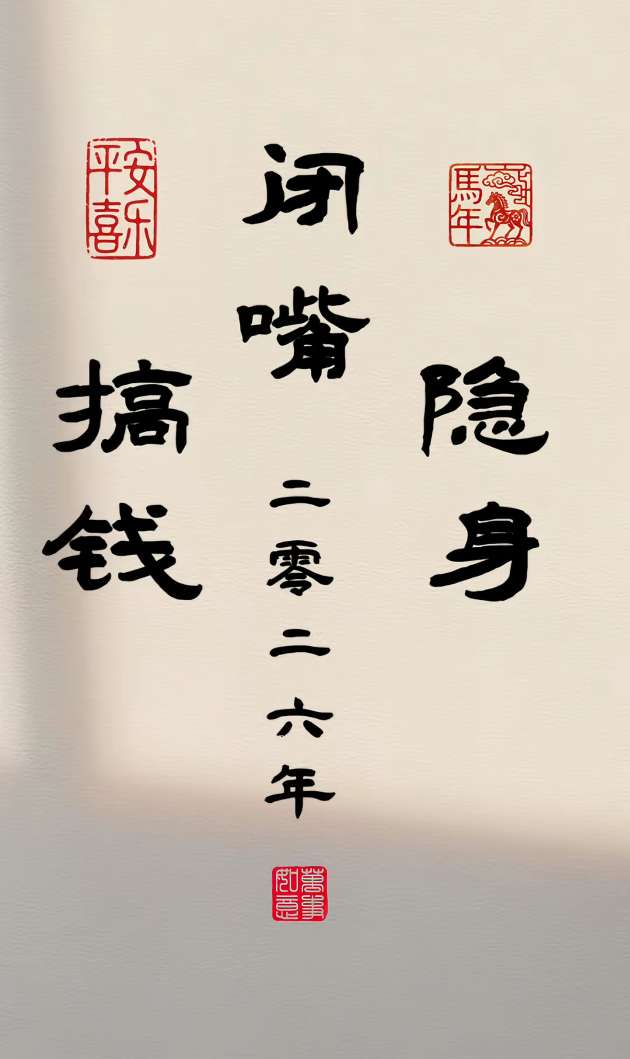 平安
喜乐
闭嘴
馬年
搞钱
隐身
二零二六年
萬事
如意